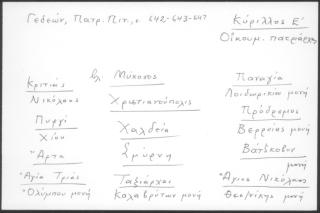 Γεδεών, Πατρ. Πιν., σ. 642-643-647
Κύριλλος Ε´
Οἰκουμ. πατριάρχης
Κριτιάς
βλ Μύκονος
Παναγία
Νικόλαος
Χριστιανούπολις
μονή
Πυργί
Χαλδεία
Πρόδρομος
Χίου
Βερροίας μονή
Ἄρτα
Σμύρνη
Βατοπεδίου
μονή
Ἁγία Τριὰς
Ταξιάρχαι
Ἅγιος Νικόλαος
Ὀλύμπου μονή
Καλαβρύτων μονή
μονή